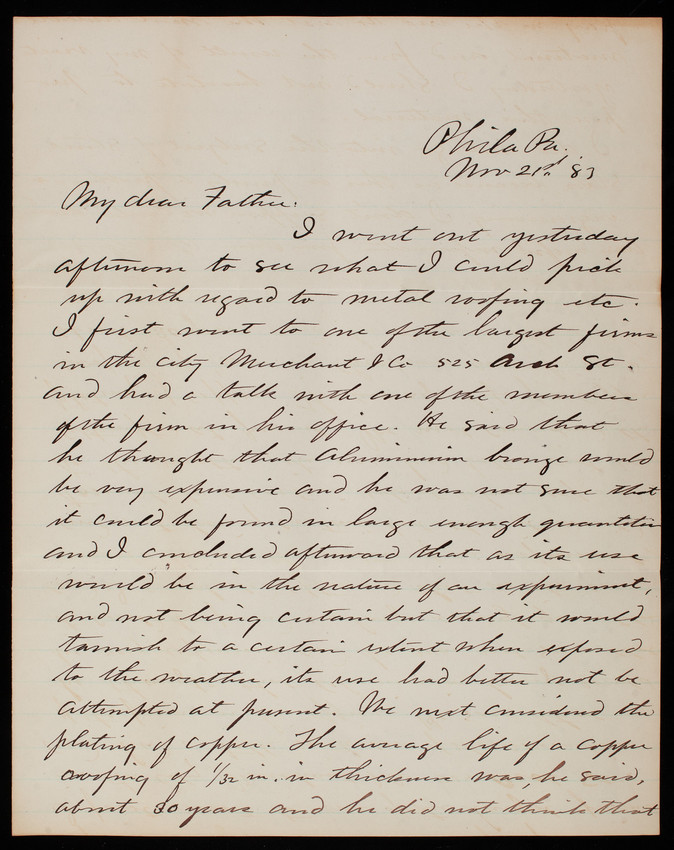 Phila Pa.
Nov 21st '83
My dear Father:
I went out yesterday
afternoon to see what I could pick
up with regard to metal roofing etc.
I first went to one of the largest firms
in the city Merchant & Co 525 Arch St.
and had a talk with one of the members
of the firm in his office. He said that
he thought that Aluminium bronze would
be very expensive and he was not sure that
it could be found in large enough quantities
and I concluded afterward that as its use
would be in the nature of an experiment,
and not being certain but that it would
tarnish to a certain extent when exposed
to the weather, its use had better not be
attempted at present. We next considered the
plating of copper. The average life of a copper
roofing of 1/32 in. in thickness was, he said,
about 30 years and he did not think that